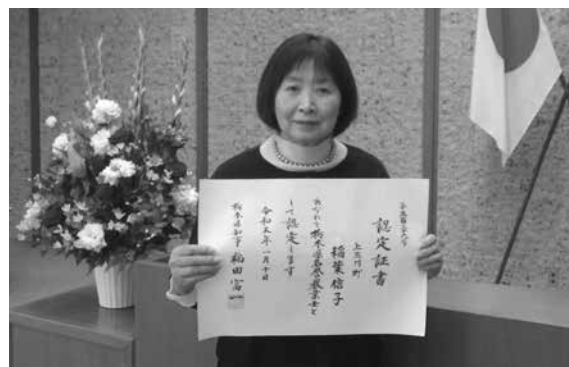 認定証書
上三川町
稲葉信子
あなたを栃木県名誉農業士と
して認定します
令和五年一月十日
栃木県知事 福田富一